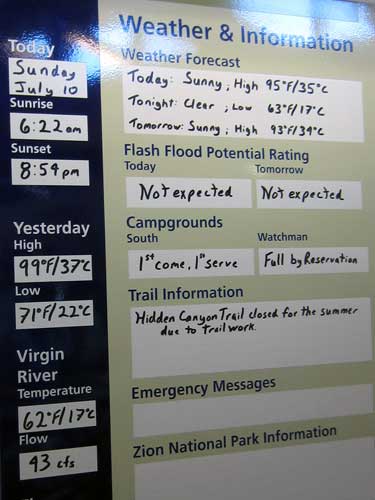 Weather & Information
Today
Sunday
July 10
Sunrise
6:22am
Sunset
8:54pm
Yesterday
High
99°F/37°C
Low
71°F/22°C
Virgin
River
Temperature
62°F/17°C
Flow
43 cfs
Weather Forecast
Today: Sunny; High 95°F/35°C
Tonight: Clear; Low 63°F/17°C
Tomorrow: Sunny; High 93°F/34°C
Flash Flood Potential Rating
Today
Not expected
Tomorrow
Not expected
Campgrounds
South
1st come, 1st serve
Watchman
Full by Reservation
Trail Information
Hidden Canyon Trail closed for the summer
due to trail work.
Emergency Messages
Zion National Park Information